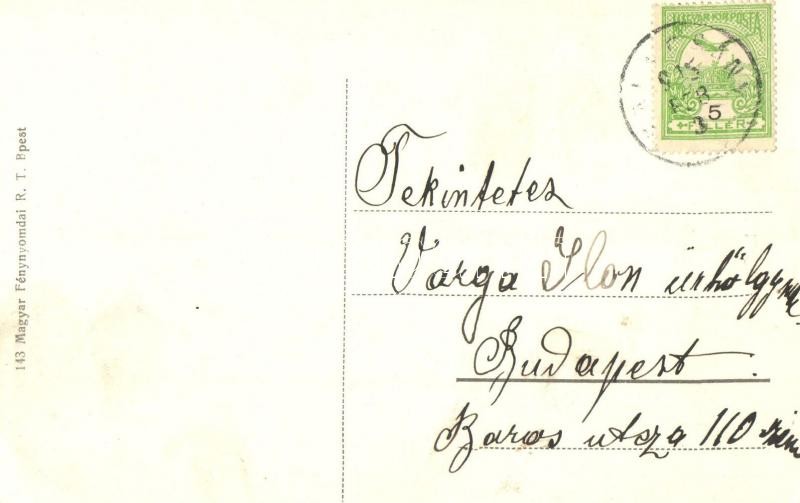 MAGYAR KIR. POSTA
5
FILLÉR
Tekintetes
Varga Ilon úrhölgynek
Budapest.
Baros utcza 110 szám
143 Magyar Fénynyomdai R. T. Bpest